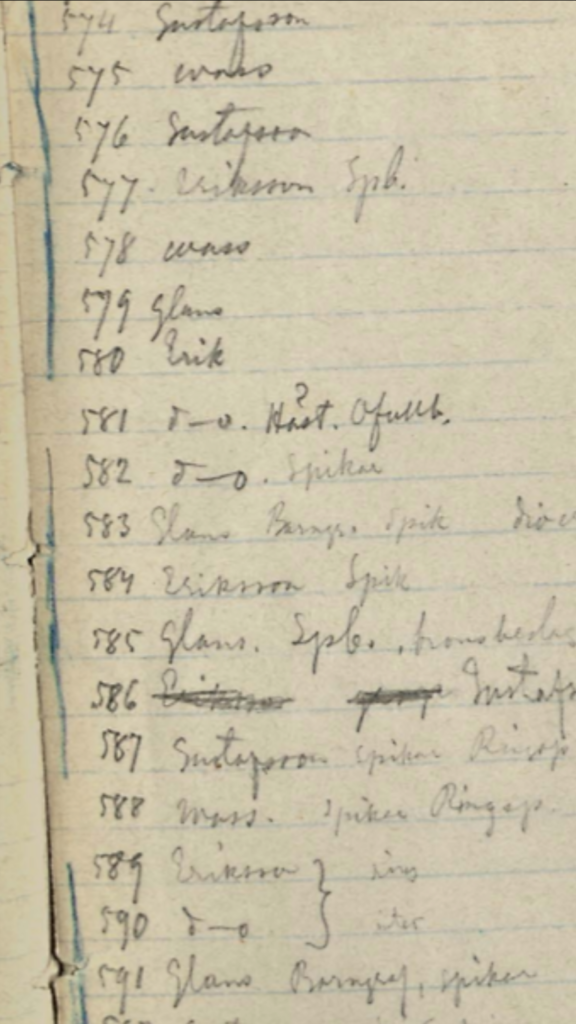 574 Gustafsson
575 wass
576 Gustafsson
577. Eriksson Spb.
578 wass
579 Glans
580 Erik
581 d—o. Häst. ? Ofullb.
582 d—o. Spikar
583 Glans Barngr. Spik
584 Eriksson Spik
585 Glans. Spb.
586 Eriksson Gustafs
587 Gustafsson spikar Ringsp
588 Wass. spikar Ringsp.
589 Eriksson }
590 d—o
591 Glans Barngraf, spikar